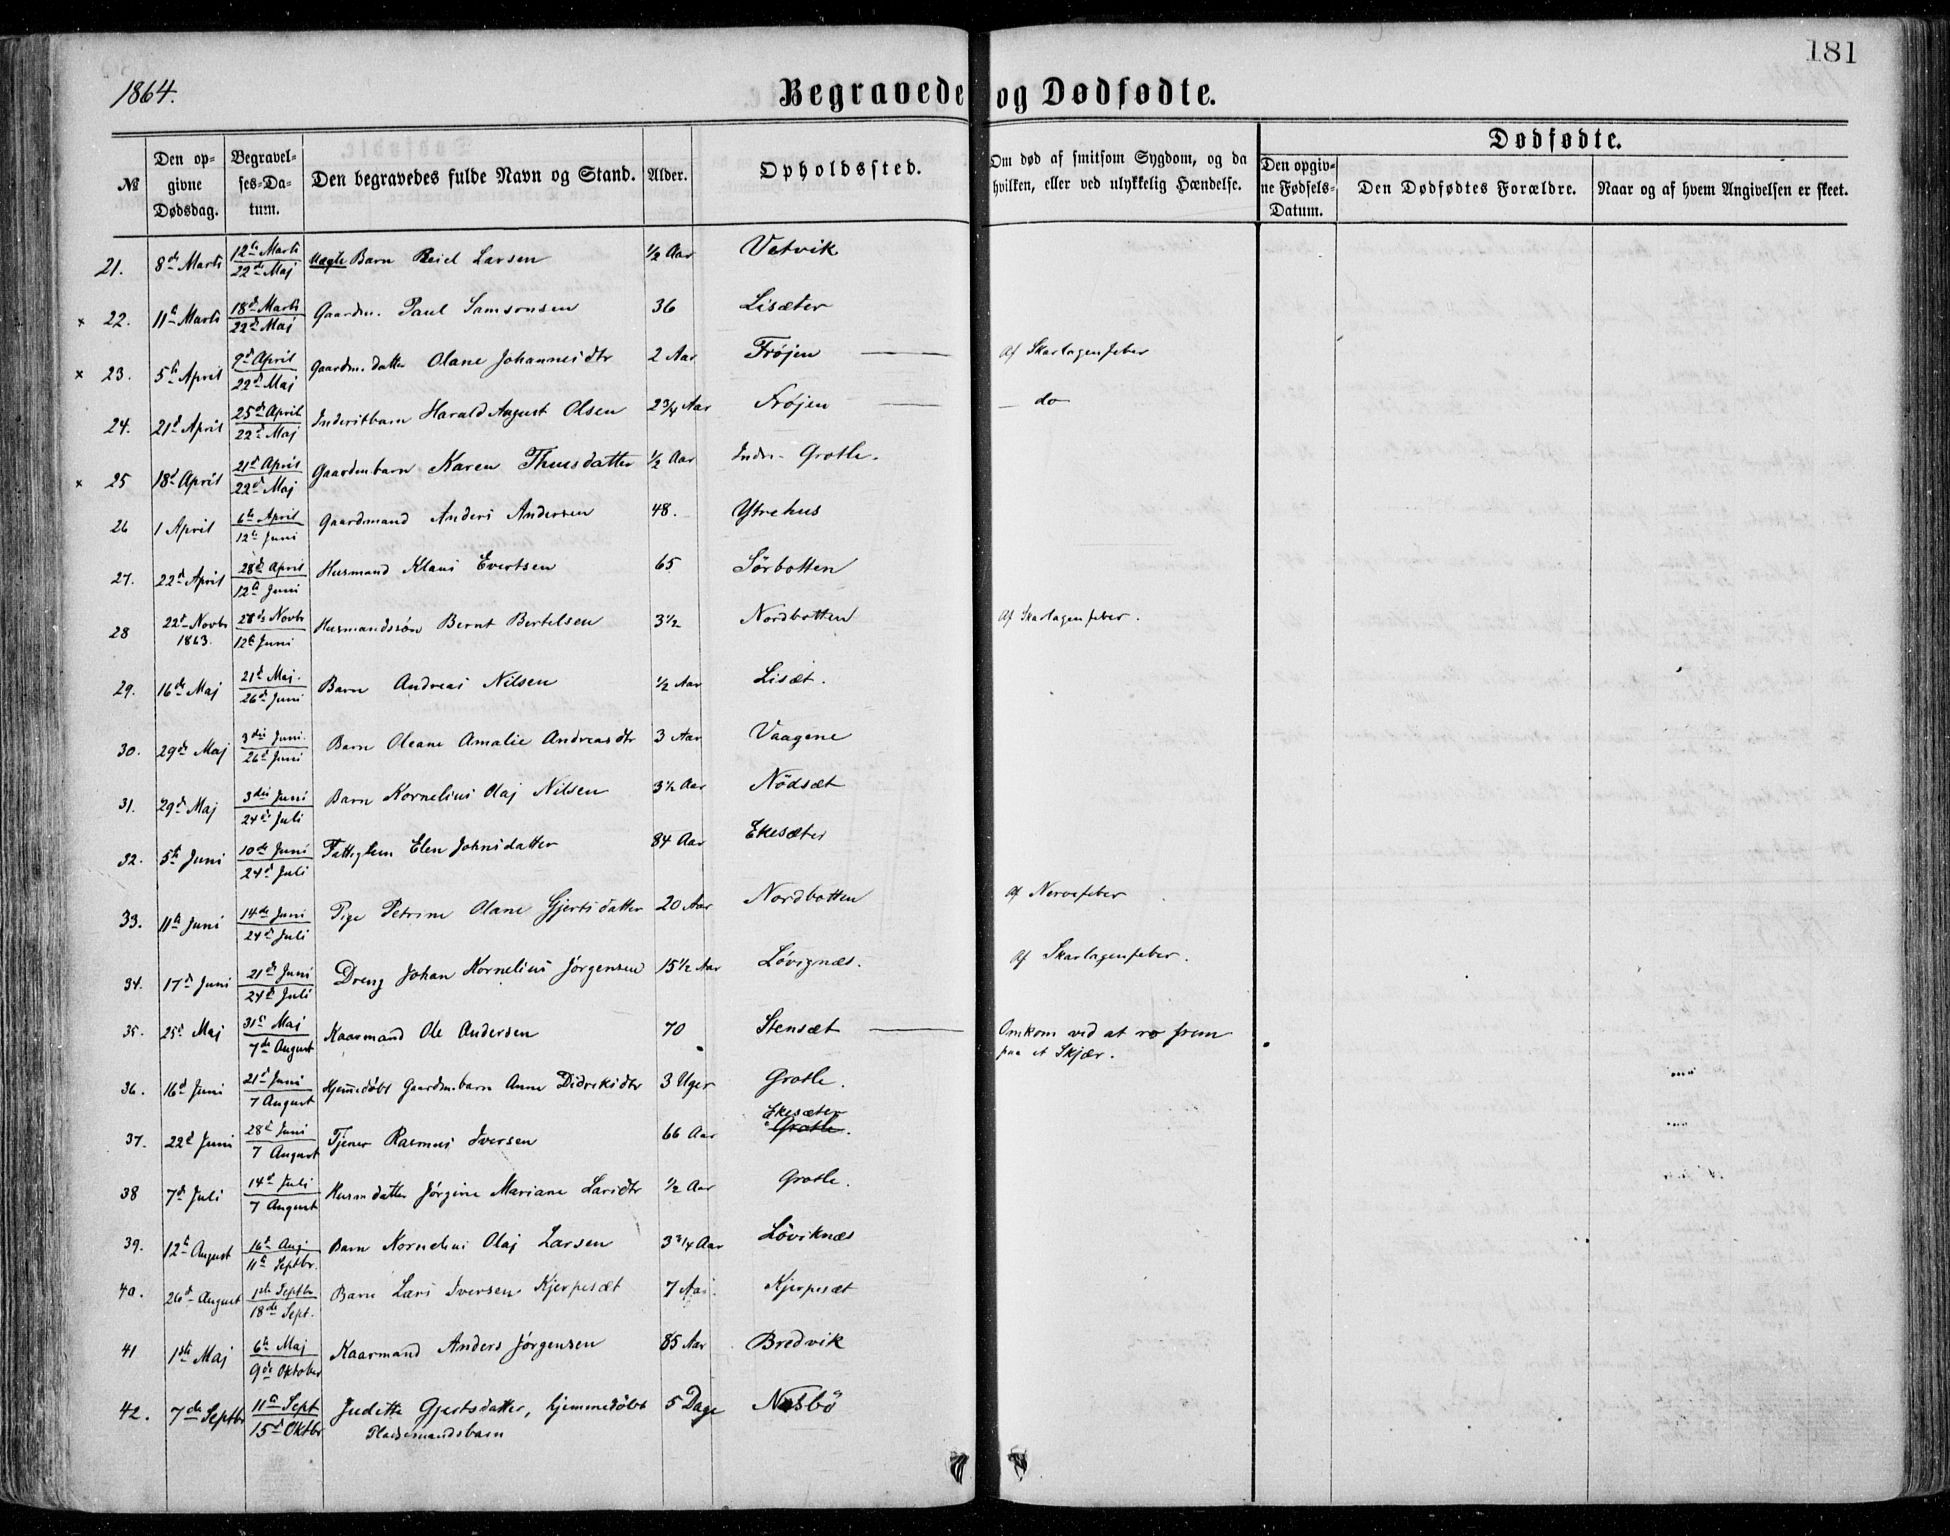 181
1864.
Begravede og Dødfødte.
№
Den opgivne Dødsdag.
Begravelses-Datum.
Den begravedes fulde Navn og Stand.
Alder.
Opholdssted.
Om død af smitsom Sygdom, og da hvilken, eller ved ulykkelig Hændelse.
Dødfødte.
Den opgivne Fødsels-Datum.
Den Dødfødtes Forældre.
Naar og af hvem Angivelsen er skeet.
21. 8de Marts 12te Marts 22de Maj Uægte Barn Reiel Larsen 1/2 Aar Vetvik
× 22. 11te Marts 18d Marts 22de Maj Gaardm. Paul Samsonsen 36 Lisæter
× 23. 5te April 9d April 22d Maj Gaardm. datter Olane Johannesdtr 2 Aar Frøjen — Af Skarlagenfeber
24. 21d April 25de April 22d Maj Inderstbarn Harald August Olsen 2 3/4 Aar Frøjen — — do
× 25 18d April 21d April 22d Maj Gaardmbarn Karen Thuesdatter 1/2 Aar Indre Grotle.
26 1 April 6te April 12te Juni Gaardmand Anders Andersen 48. Ytrehus
27. 22d April 28de April 12te Juni Husmand Klaus Evertsen 65 Sørbotten
28 22d Novbr 1863. 28de Novbr 12te Juni Husmandssøn Bernt Bertelsen 3 1/2 Nordbotten Af Skarlagenfeber.
29. 16de Maj 21d Maj. 26d Juni Barn Andreas Nilsen 1/2 Aar Lisæt.
30. 29de Maj 3die Juni. 26d Juni Barn Oleane Amalie Andreasdtr 3 Aar Vaagene
31. 29d Maj 3die Juni 24d Juli Barn Kornelius Olaj Nilsen 3 1/2 Aar Nødsæt
32. 5te Juni 10de Juni 24d Juli Fattiglem Elen Johnsdatter 84 Aar Ekesæter
33. 11te Juni 14de Juni 24d Juli Pige Petrine Olane Gjertsdatter 20 Aar Nordbotten Af Nervefeber
34. 17d Juni 21d Juni 24d Juli Dreng Johan Kornelius Jørgensen 15 1/2 Aar Løvignæs. Af Skarlagenfeber.
35. 25d Maj 31te Maj 7de August Kaarmand Ole Andersen 70 Stensæt — Omkom ved at ro frem
paa et Skjær.
36. 16d Juni 21d Juni 7 August Hjemmedøbt Gaardm.barn Anne Didriksdtr 3 Uger Grotle.
37. 22d Juni 28d Juni 7 August Tjener Rasmus Iversen 66 Aar Ekesæter Grotle.
38 7d Juli 14d Juli 7 August Husmdatter Jørgine Mariane Larsdtr 1/2 Aar Grotle.
39. 12te August 16d Aug 11te Septbr. Barn Kornelius Olaj Larsen 3 3/4 Aar Løviknæs
40. 26d August 1ste Septbr 18de Sept. Barn Lars Iversen Kjerpesæt 7 Aar. Kjerpesæt
41 1ste Maj 6te Maj 9de Oktober Kaarmand Anders Jørgensen 85 Aar Bredvik
42. 7de Septbr 11te Sept 15d Oktbr Juditte Gjertsdatter, hjemmedøbt 5 Dage Nesbø
Pladsemandsbarn